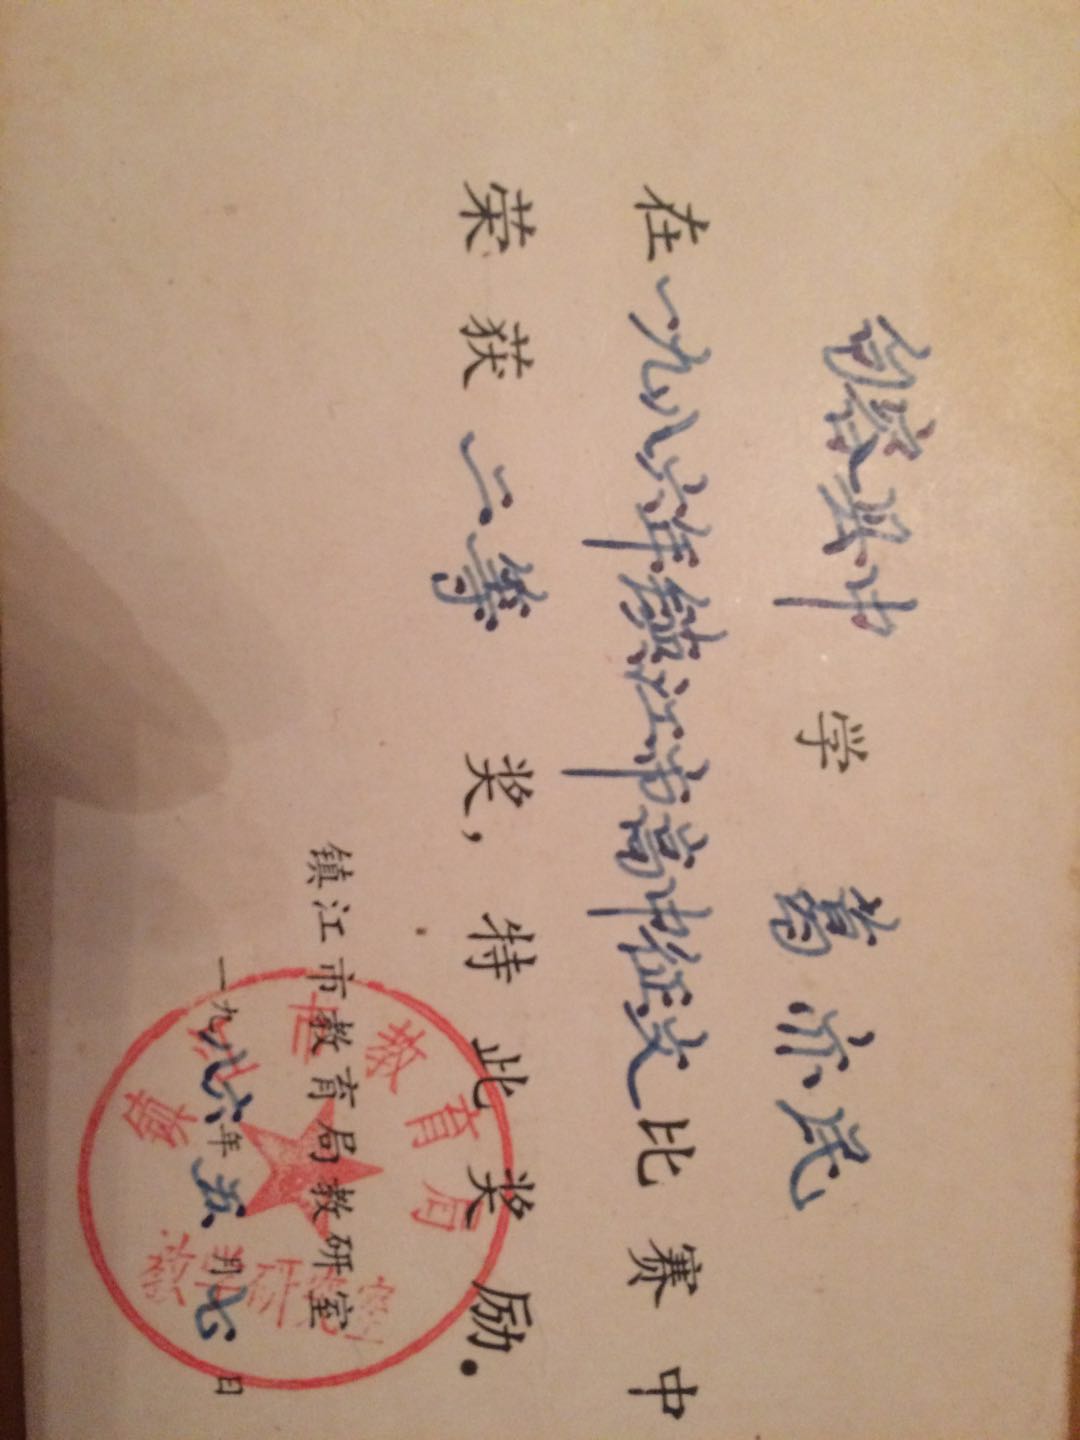 句容县中学 葛亦民
在一九八六年镇江市高中征文比赛中
荣获二等 奖，特此奖励.
镇江市教育局教研室
一九八六年五月七日
镇江市教育局
教学研究室